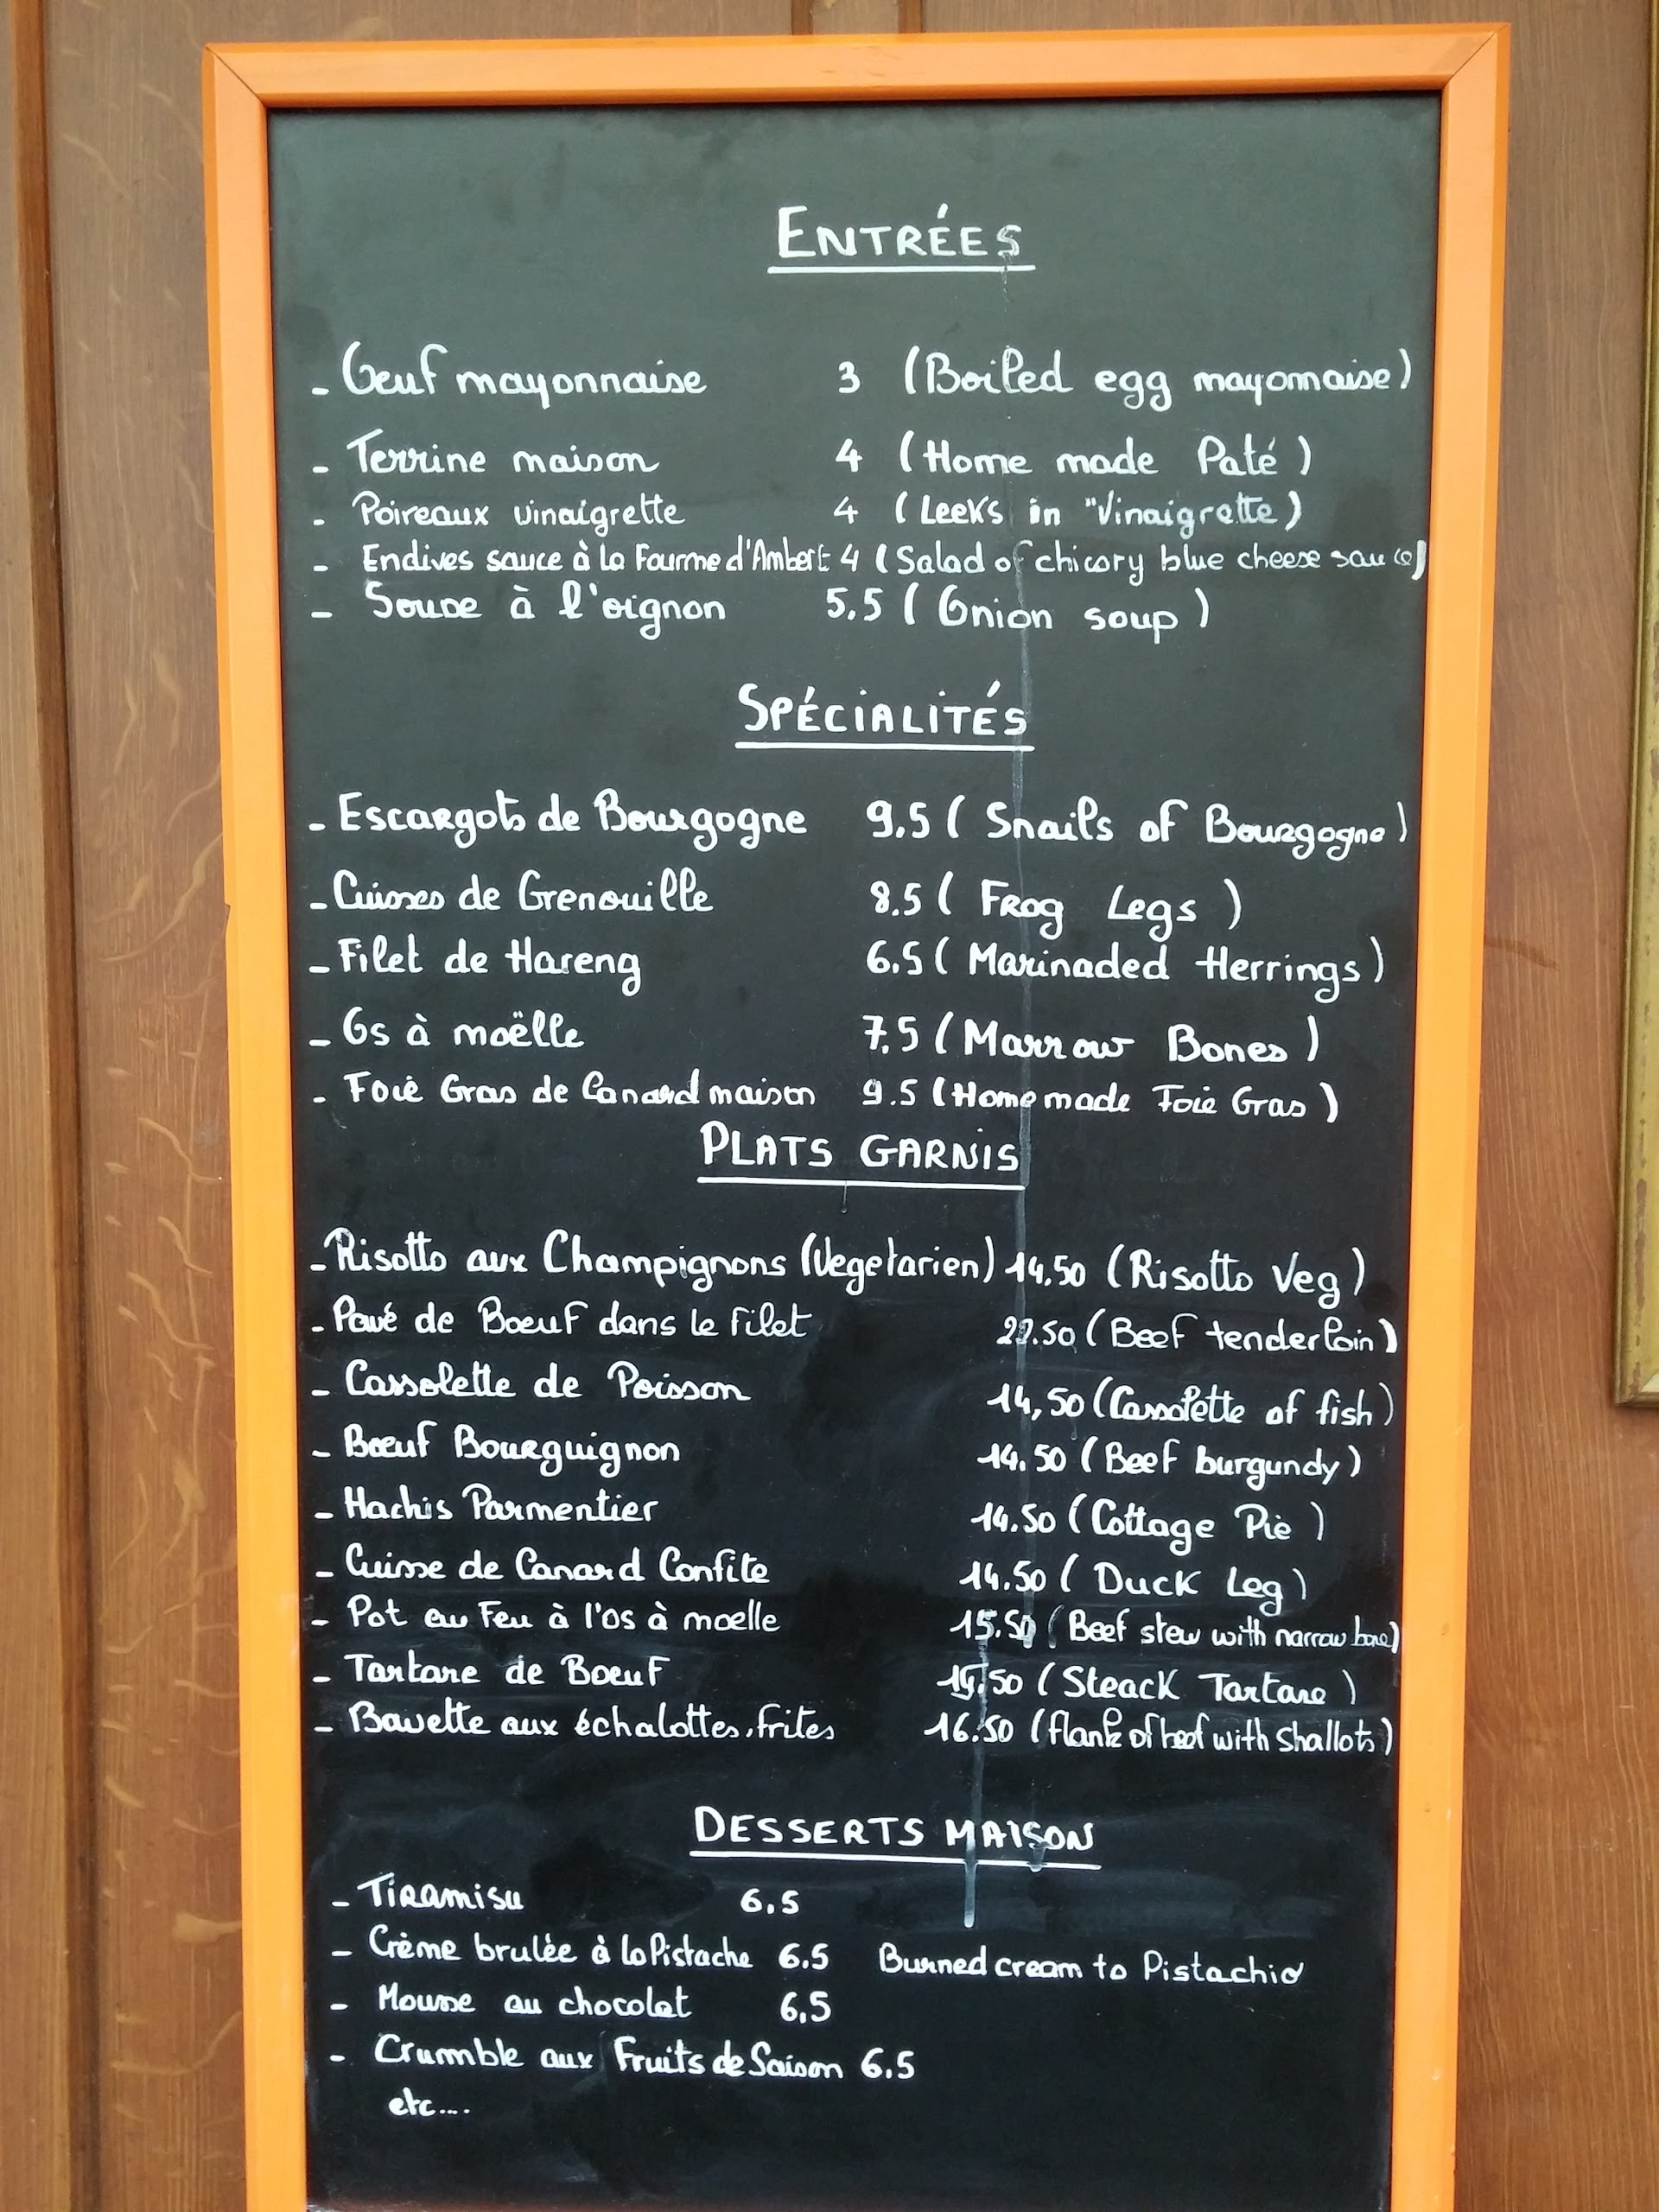 ENTRÉES
- Oeuf mayonnaise 3 (Boiled egg mayonnaise)
- Terrine maison 4 (Home made Paté)
- Poireaux vinaigrette 4 (Leeks in "Vinaigrette)
- Endives sauce à la Fourme d'Ambert 4 (Salad of chicory blue cheese sauce)
- Soupe à l'oignon 5.5 (Onion soup)
SPÉCIALITÉS
- Escargots de Bourgogne 9.5 (Snails of Bourgogne)
- Cuisses de Grenouille 8.5 (Frog Legs)
- Filet de Hareng 6.5 (Marinaded Herrings)
- Os à moëlle 7.5 (Marrow Bones)
- Foie Gras de Canard maison 9.5 (Home made Foie Gras)
PLATS GARNIS
- Risotto aux Champignons (Vegetarien) 14.50 (Risotto Veg)
- Pavé de Boeuf dans le filet (Beef tenderloin)
- Cassolette de Poisson 14,50 (Cassolette of fish)
- Bœuf Bourguignon 14.50 (Beef burgundy)
- Hachis Parmentier 14.50 (Cottage Pie)
- Cuisse de Canard Confite 14.50 (Duck Leg)
- Pot au Feu à l'os à moelle 15.50 (Beef stew with narrow bone)
- Tartare de Boeuf (Steack Tartare)
- Bavette aux échalottes, frites 16.50 (flank of beef with shallots)
DESSERTS MAISON
- Tiramisu 6.5
- Crème brulée à la Pistache 6.5 Burned cream to Pistachio
- Mousse au chocolat 6,5
- Crumble aux Fruits de Saison 6.5
etc....